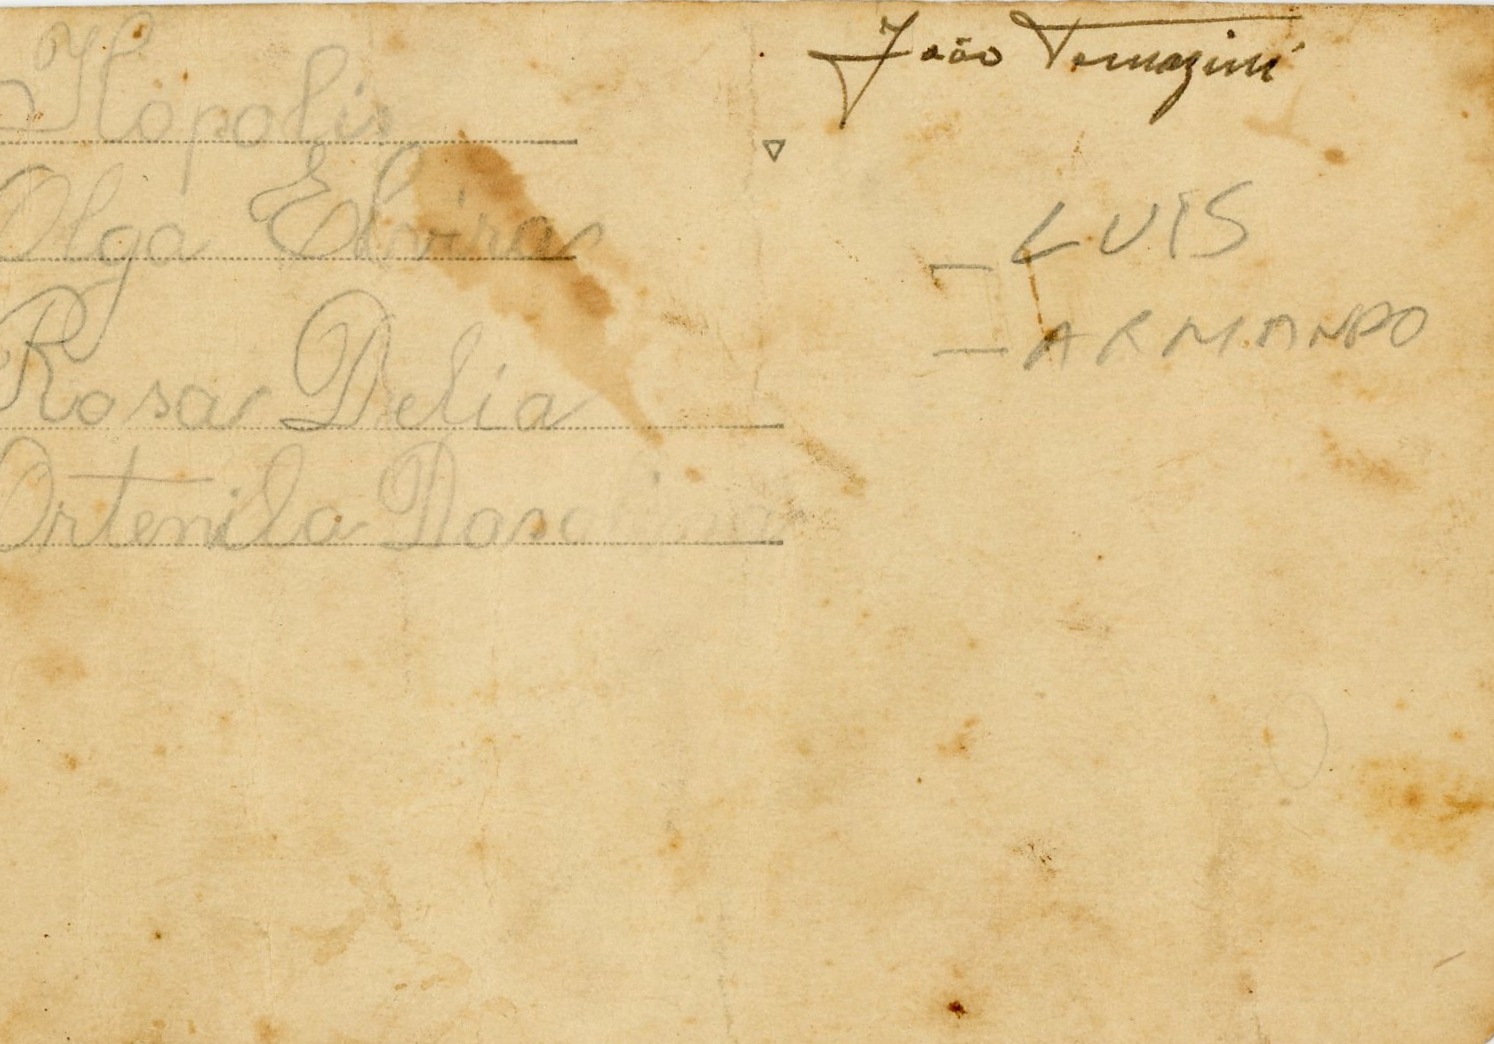 Ilópolis
Olga Elvira
Rosa Delia
Ortenila
João Tomazini
- LUIS
- ARMANDO